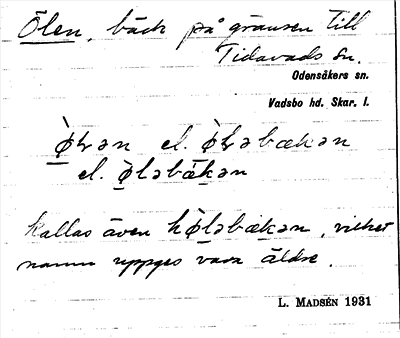 Ölen, bäck på gränsen till
Tidavads sn.
Odensåkers sn.
Vadsbo hd. Skar. l.
ø̀lən el. ø̀ləbækən
el. øləbækən
kallas även hø̀ləbækən, vilket
namn uppges vara äldre.
L. MADSÉN 1931